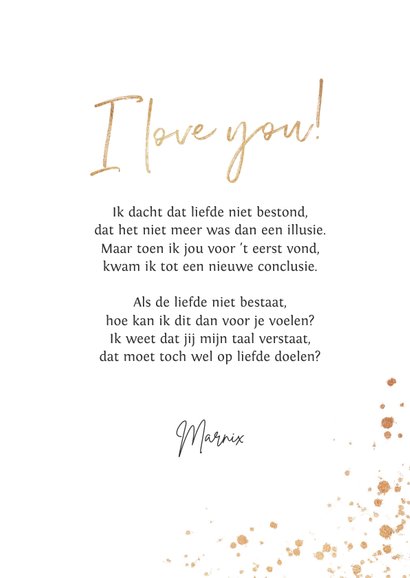 I love you!
Ik dacht dat liefde niet bestond,
dat het niet meer was dan een illusie.
Maar toen ik jou voor 't eerst vond,
kwam ik tot een nieuwe conclusie.
Als de liefde niet bestaat,
hoe kan ik dit dan voor je voelen?
Ik weet dat jij mijn taal verstaat,
dat moet toch wel op liefde doelen?
Marnix